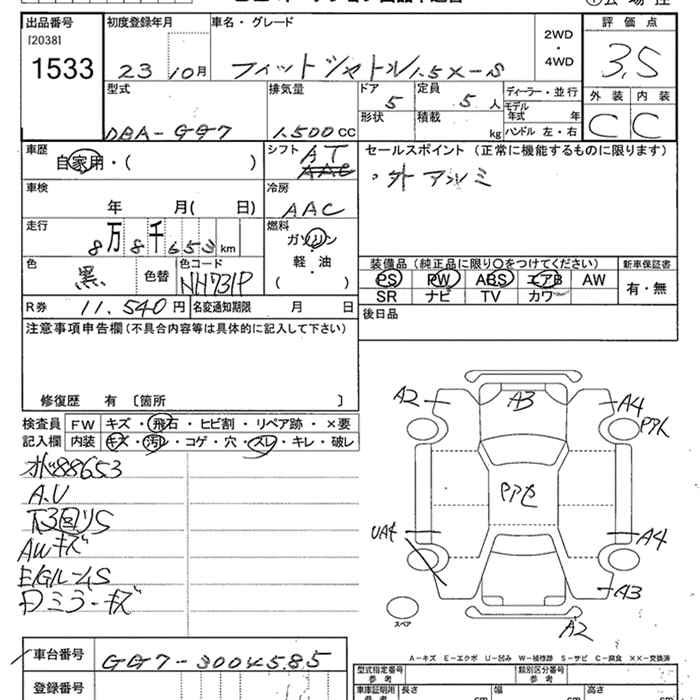 出品番号 初度登録年月 車名・グレード 2WD・4WD 評価点
[2038]
1533 23 10月 フィットシャトル1.5X-S 3.5
型式 排気量 ドア 定員 ディーラー・並行 外装 内装
5 5人 モデル年式 年
DBA-GG7 1.500CC 形状 積載 kg ハンドル 左・右 C C
車歴 シフト AT セールスポイント(正常に機能するものに限ります)
自家用・( ) AAC ・外アルミ
車検 冷房
年 月( 日) AAC
走行 燃料
8万8千653km ガソリン
軽・油
( )
色 色替 色コード 装備品(純正品に限り〇をつけてください) 新車保証書
黒 NH731P PS PW ABS エアB AW 有・無
SR ナビ TV カワ
R券 11.540円 名変通知期限 月 日 後日品
注意事項申告欄(不具合内容等は具体的に記入して下さい)
修復歴 有 〔箇所 〕
検査員 FW キズ・飛石・ヒビ割・リペア跡・×要
記入欄 内装 キズ・汚レ・コゲ・穴・スレ・キレ・破レ
A2 A3 A4
88653
A.U
AWキズ
UA4 A4
A3
スペア A2
A-キズ E-エクボ U-凹み W-補修跡 S-サビ C-腐食 XX-交換済
車台番号 GG7-3004585
登録番号
型式指定番号 参考 類別区分番号 参考
車庫証明用 参考 長さ cm 幅 cm 高さ cm